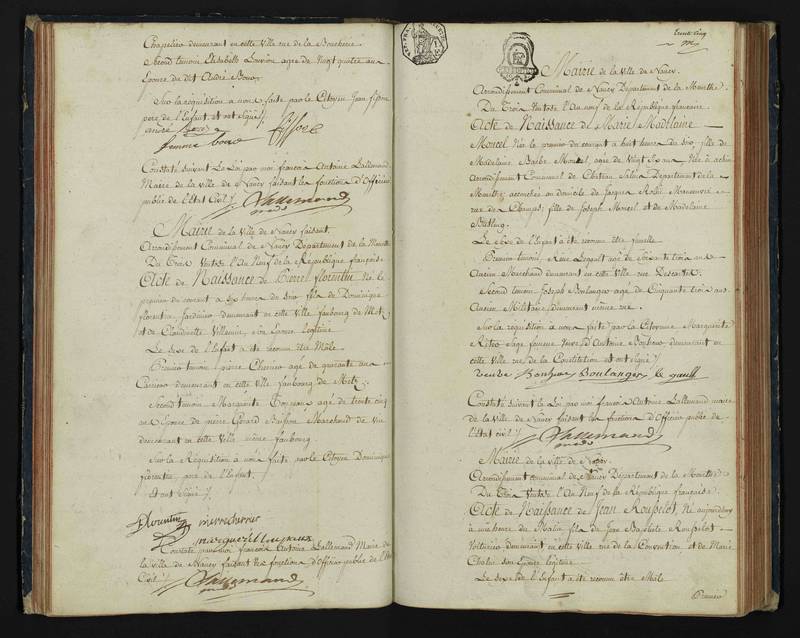 Chapelier demeurant en cette Ville rue de la Boucherie
Second temoin Elisabeth agée de Vingt quatre ans
Epouse du dit André
Sur la requisition a nous faite par le Citoyen Jean
pere de l'Enfant et ont signé
andré
femme
Constaté suivant La Loi par moi françois Antoine Lallemand
Maire de la ville de Nancy faisant les fonctions d'Officier
public de l'Etat Civil
Lallemand
Mairie de la Ville de Nancy
Arrondissement Communal de Nancy Département de la Meurthe
Du Trois Ventose l'An Neuf de la République française
Acte de Naissance de Pierre florentin Né le
premier du courant a six heures du soir fils de Dominique
florentin Jardinier demeurant en cette Ville faubourg de Metz
et de Claudinette Villemin, son Epouse legitime
Le sexe de l'Enfant a été reconnu être Mâle
Premier temoin pierre agé de quarante ans
Carrier demeurant en cette Ville faubourg de Metz
Second temoin Marguerite agée de trente cinq
ans Epouse de pierre Marchand de vin
demeurant en cette Ville même faubourg
Sur la Requisition à nous faite par le Citoyen Dominique
florentin pere de l'Enfant
Et ont Signé
Florentin
Constaté par moi françois Antoine Lallemand Maire de
la ville de Nancy faisant les fonctions d'Officier public de l'Etat
Civil
Lallemand
trente cinq
Mairie de la Ville de Nancy
Arrondissement Communal de Nancy Département de la Meurthe
Du Trois Ventose l'An neuf de la République française
Acte de Naissance de Marie Madelaine
Moncel Née le premier du courant à huit heures du soir, fille de
Madelaine Barbe Moncel, agée de Vingt ans, Née à
Arrondissement Communal de Château Salins Département de la
Meurthe, accouchée au domicile de Jacques Manoeuvre
rue de Champs; fille de Joseph Moncel et de Madelaine
Le sexe de l'Enfant a été reconnu être femelle
Premier temoin, René Legault agé de Soixante trois ans
Ancien Marchand demeurant en cette Ville rue
Second temoin Joseph Boulanger agé de Cinquante trois ans
Ancien Militaire demeurant même rue
Sur la requisition à nous faite par la Citoyenne Marguerite
Sage femme Veuve d'Antoine demeurant en
cette Ville rue de la Constitution et ont signé
veuve Boulanger le gault
Constaté suivant la Loi par moi françois Antoine Lallemand maire
de la Ville de Nancy faisant les fonctions d'Officier public de
l'Etat civil
Lallemand
Mairie de la ville de Nancy
Arrondissement communal de Nancy Département de la Meurthe
Du Trois Ventose l'An Neuf de la République française
Acte de Naissance de Jean Rousselot, Né aujourd'hui
à une heure du Matin fils de Jean Baptiste Rousselot
Voiturier demeurant en cette Ville rue de la Convention et de Marie
son Epouse legitime
Le sexe de l'Enfant a été reconnu être Mâle
Premier